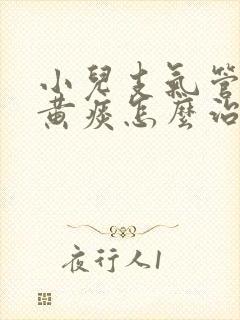 小兒支氣管
黃痰怎麼治
夜行人1